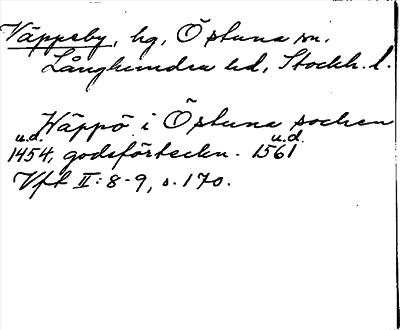 Väppeby, hg, Östuna sn.
Långhundra hd, Stockh. l.
Wäppö i Östuna socken
u.d. 1454, godsförteckn. 1561 u.d.
Vft II: 8-9, s. 170.